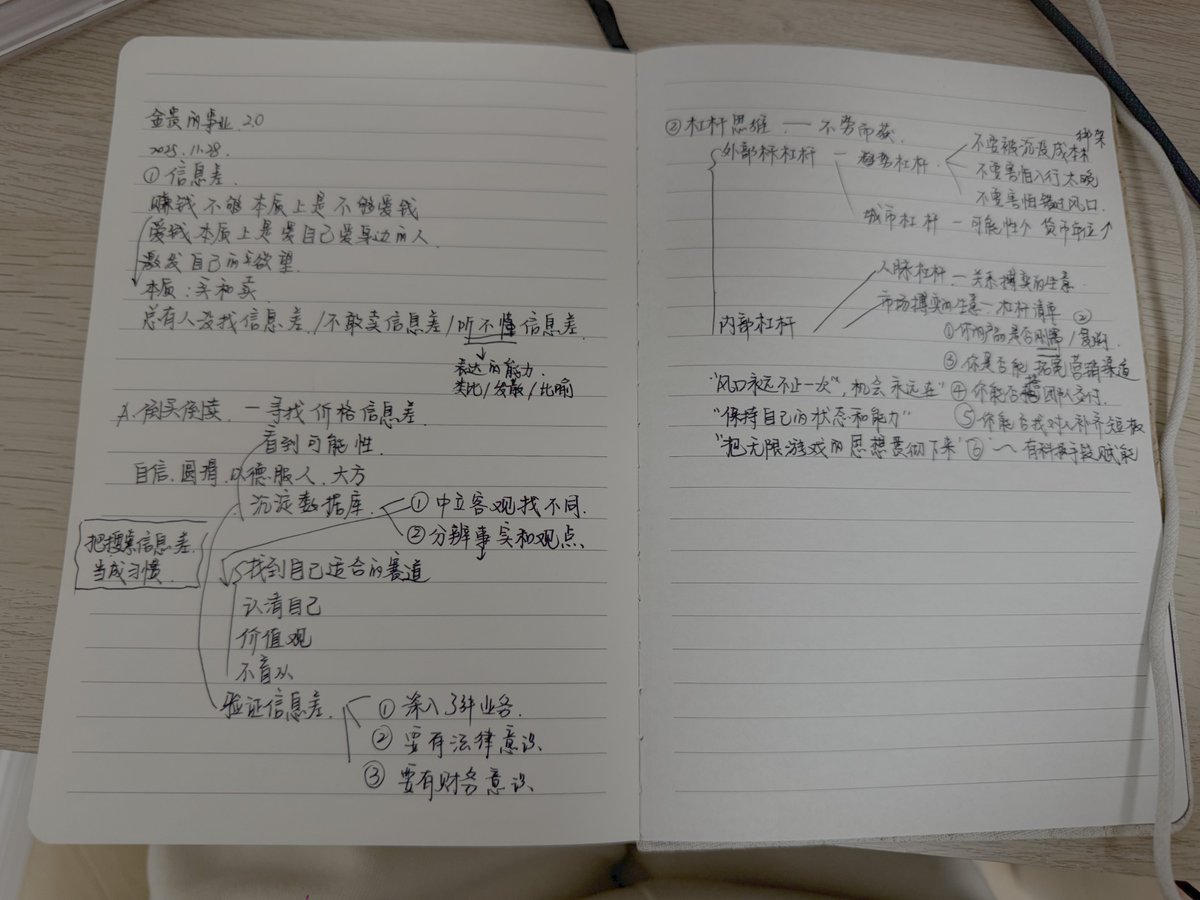 金贵的事业 2.0
2025.11.28.
① 信息差.
赚钱不够本质上是不够爱钱
爱钱本质上是爱自己爱身边的人
激发自己的欲望.
本质：买和卖.
总有人没找信息差/不敢卖信息差/听不懂信息差.
表达的能力.
类比/发散/比喻
A. 倒买倒卖. — 寻找价格信息差.
看到可能性.
自信.圆滑.以德服人.大方
沉淀数据库.
① 中立客观找不同.
② 分辨事实和观点.
把搜索信息差.
当成习惯.
找到自己适合的赛道
认清自己
价值观
不盲从
验证信息差.
① 深入了解业务.
② 要有法律意识.
③ 要有财务意识.
② 杠杆思维. — 不劳而获.
外部杠杆 — 趋势杠杆
不要被沉没成本绑架
不要害怕入行太晚
不要害怕错过风口.
城市杠杆 — 可能性个 货币单位↑
人脉杠杆 — 关系撬动的生意.
市场撬动的生意 — 杠杆清单
内部杠杆
① 你的产品是否刚需/复购.
②
③ 你是否能拓宽营销渠道
"风口永远不止一次", 机会永远在"
④ 你能否 团队交付.
"保持自己的状态和能力"
⑤ 你能否找对人补齐短板
"把无限游戏的思想贯彻下来"
⑥ 〜 有科技手段赋能